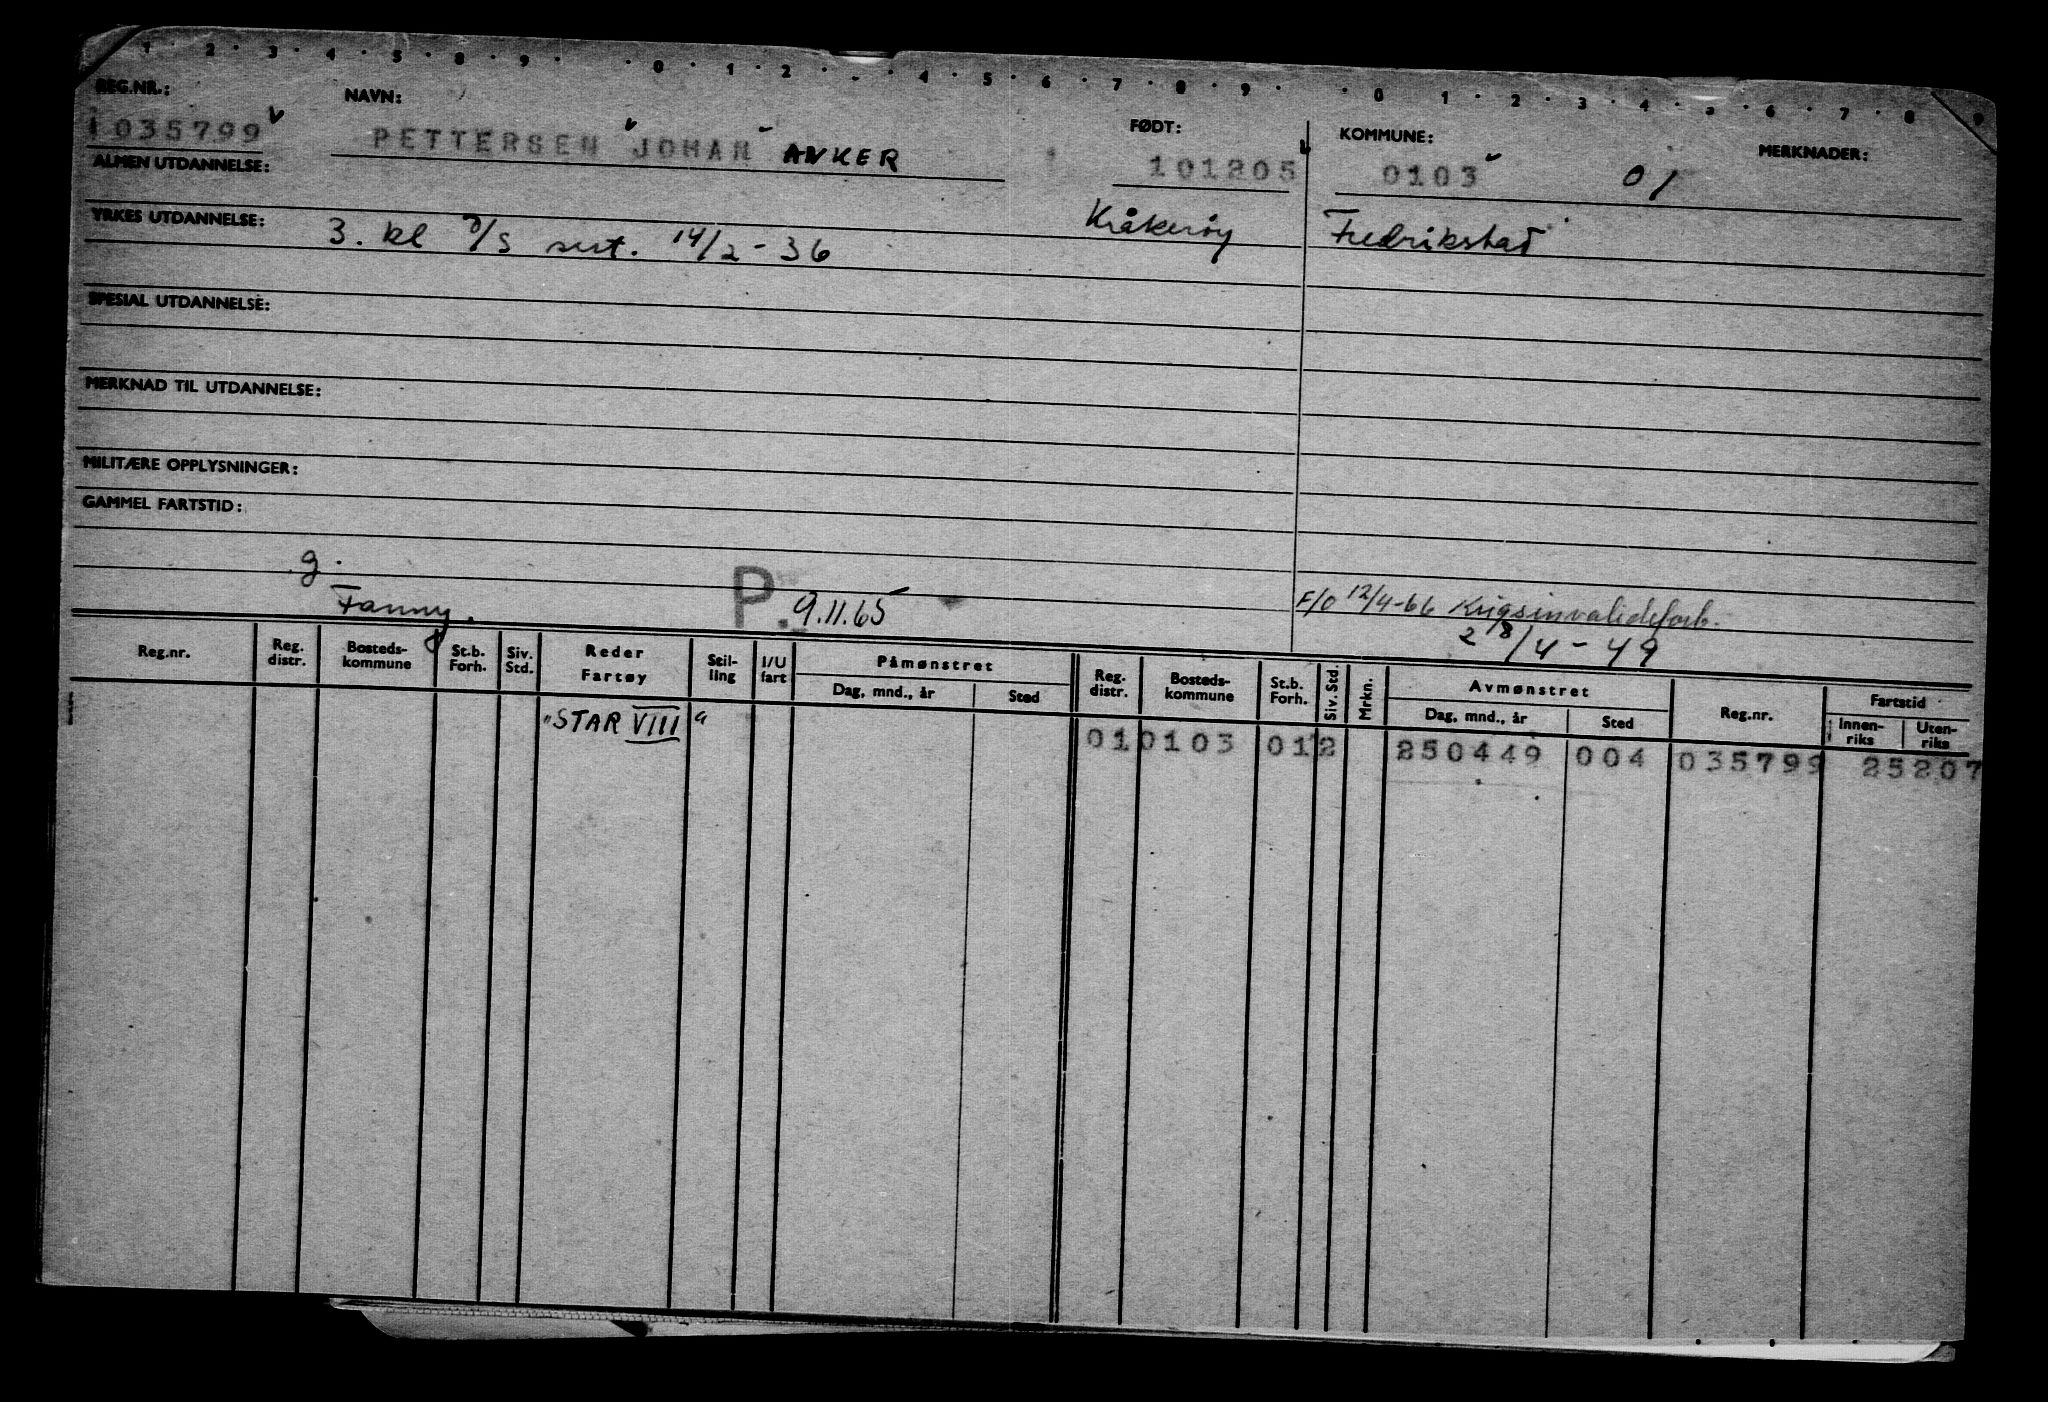 1 · 2 · 3 · 4 · 5 · 8 · 9 · · 0 · 1 · 2 · · 4 · 5 · 6 · 7 · 8 · 9 · · 0 1 · 2 · 3 · 4 · · 6 · 7 · 8 9
REG.NR.: NAVN: FØDT: KOMMUNE: MERKNADER:
1035799 PETTERSEN JOHAN ANKER 101205 0103 01
ALMEN UTDANNELSE:
YRKES UTDANNELSE: 3. kl sert. 14/2-36 Kråkerøy Fredrikstad
SPESIAL UTDANNELSE:
MERKNAD TIL UTDANNELSE:
MILITÆRE OPPLYSNINGER:
GAMMEL FARTSTID:
g.
Fanny. P. 9.11.65 F/O 12/4-66 Krigsinvalideforb.
28/4-49
Reg.nr. Reg. distr. Bosteds-kommune St.b. Forh. Siv. Std. Reder Fartøy Stil-ling I/U fart Påmønstret Dag, mnd., år Sted Reg. distr. Bosteds-kommune St.b. Forh. Siv. Std. Mrkn. Avmønstret Dag, mnd., år Sted Reg.nr. Fartstid Innen-riks Uten-riks
"STAR VIII" 01 0103 01 2 250449 004 035799 25207